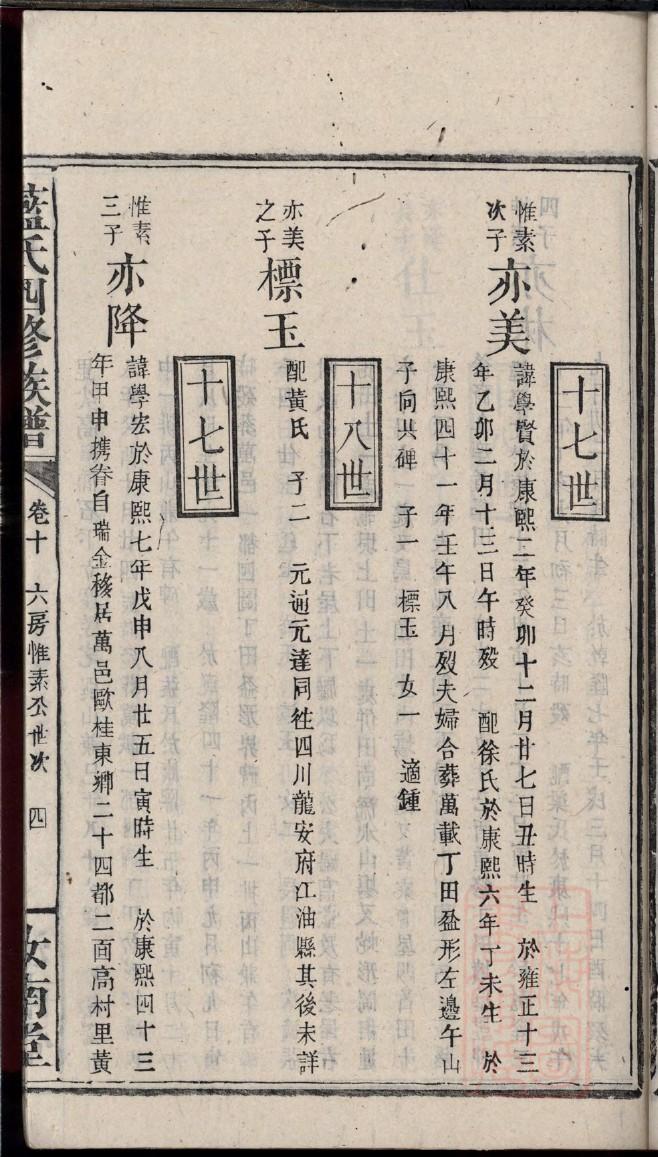 十七世
惟素次子 亦美 諱學賢於康熙二年癸卯十二月廿七日丑時生 於雍正十三
年乙卯二月十三日午時殁 配徐氏於康熙六年丁未生 於
康熙四十一年壬午八月殁夫婦合葬萬載丁田盆形左邊午山
子向共碑 子一 標玉 女一 適鍾
十八世
亦美之子 標玉 配黃氏 子二 元逈元達同徃四川龍安府江油縣其後未詳
十七世
惟素三子 亦降 諱學宏於康熙七年戊申八月廿五日寅時生 於康熙四十三
年甲申携眷自瑞金移居萬邑歐桂東鄉二十四都二啚高村里黃
藍氏四修族譜 卷十 六房惟素公世次 四 汝南堂